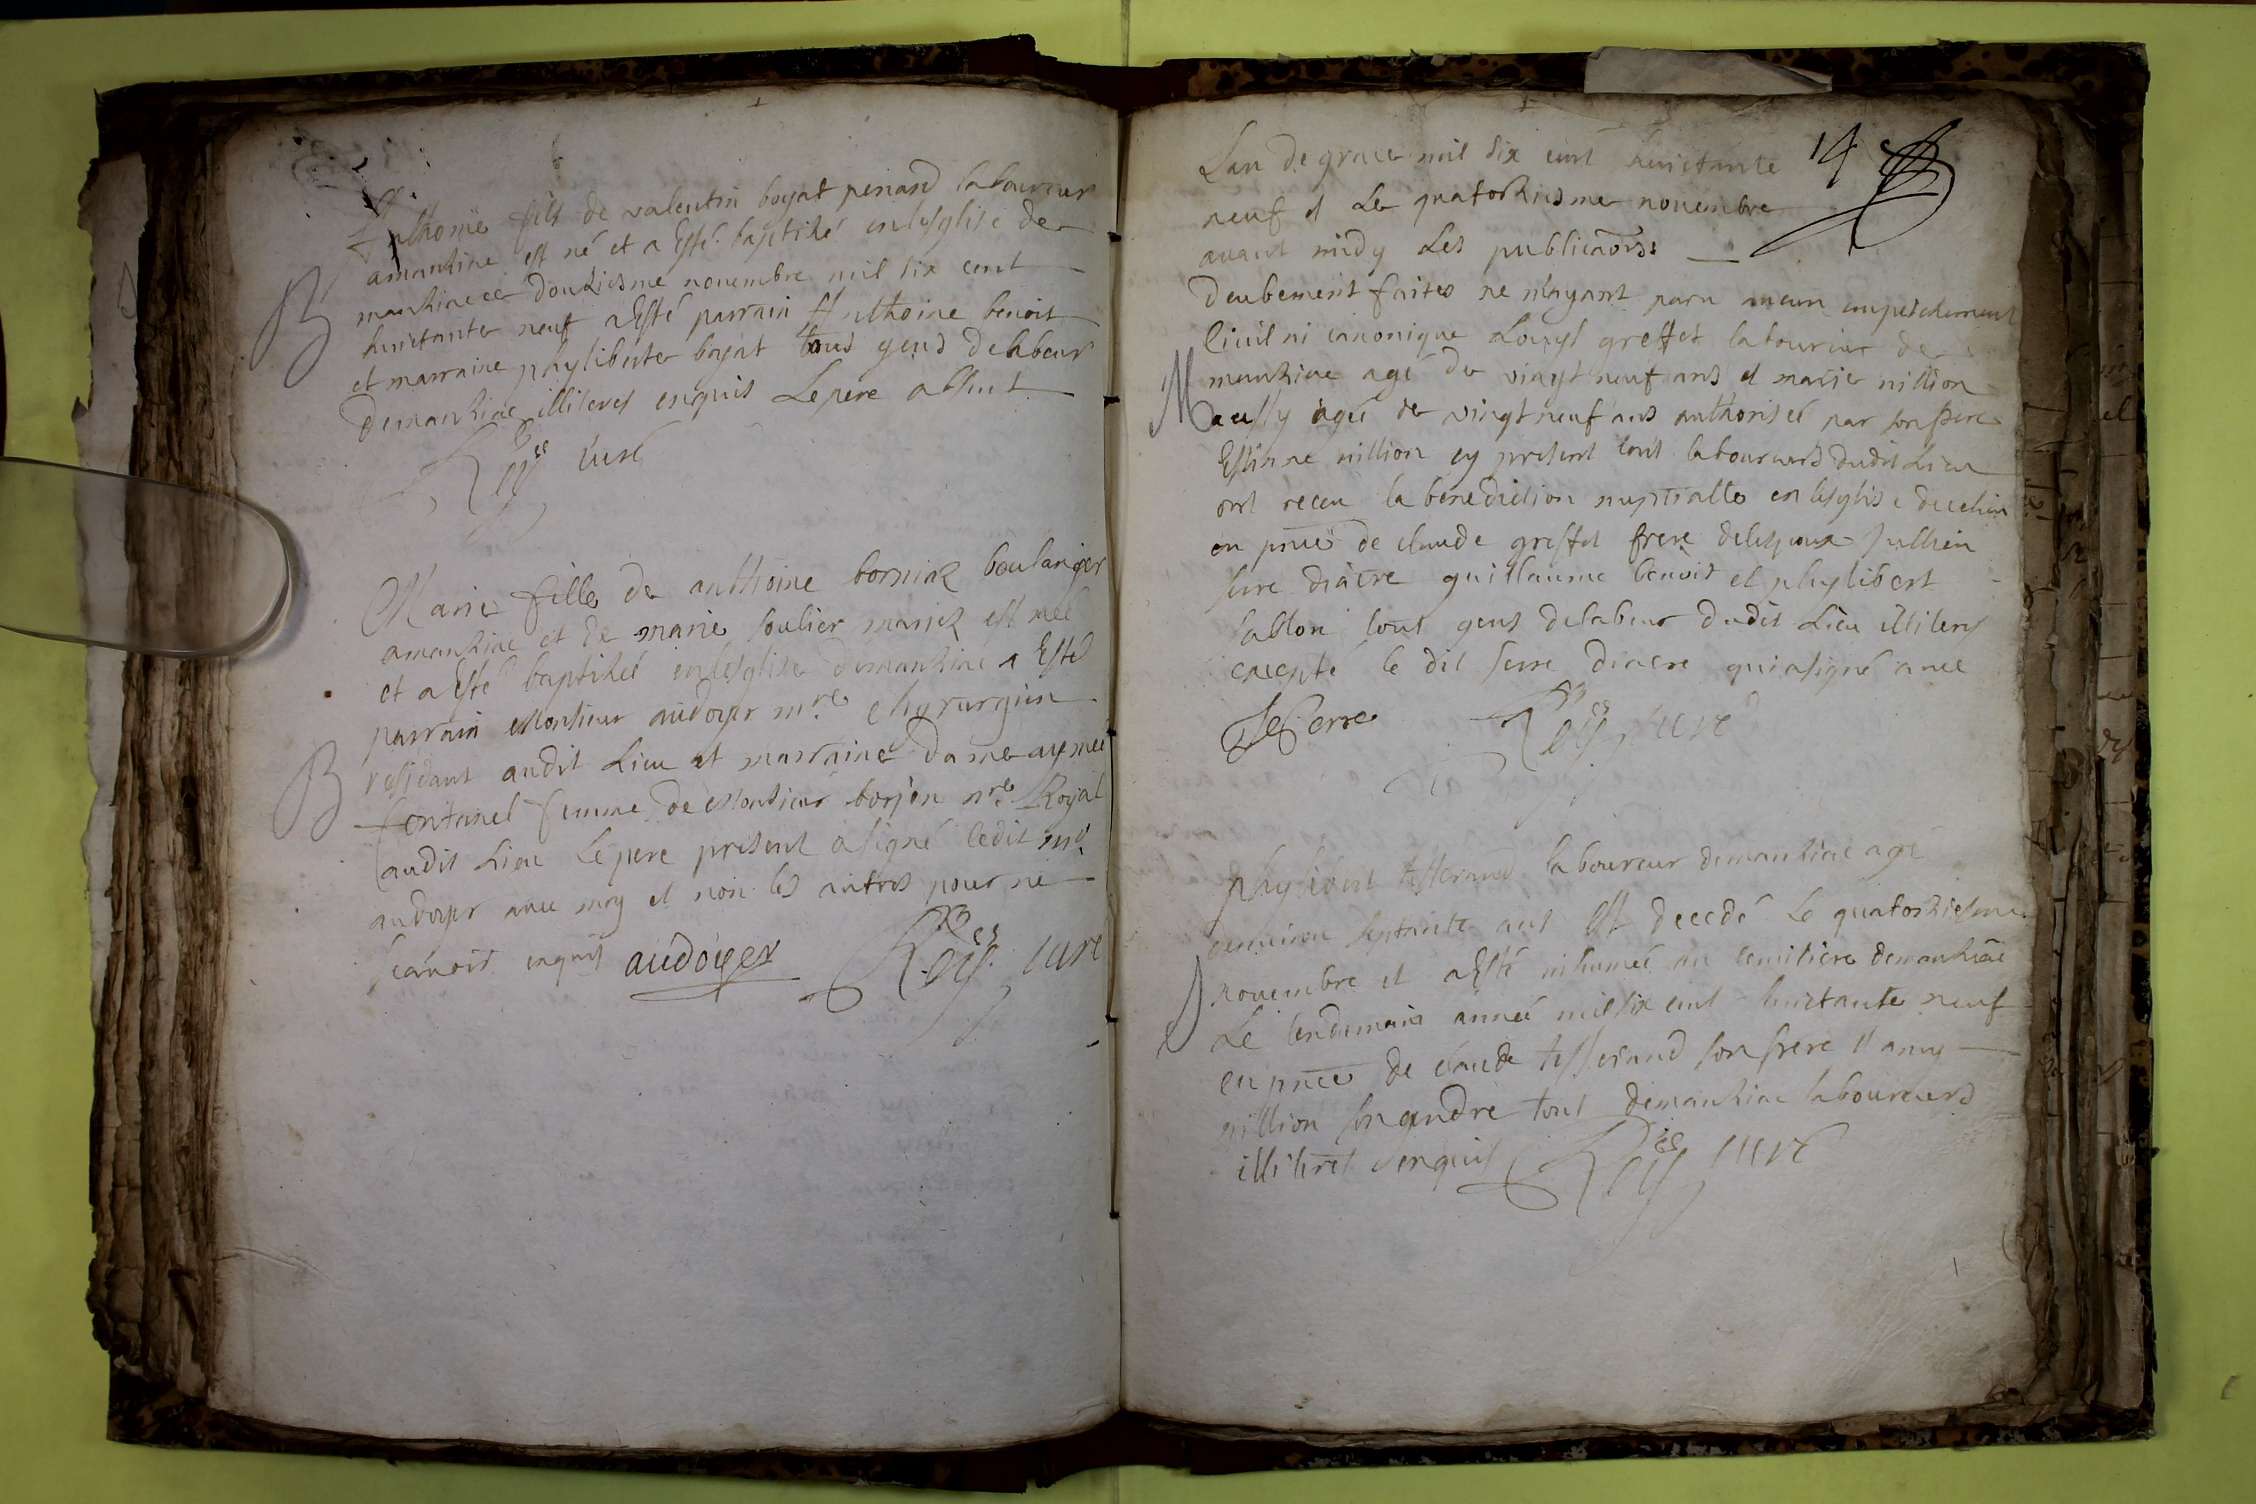 Anthoine fils de valentin boyat penard laboureur
amanziac est né et a esté baptizé en lesglise de
manziac ce douziesme novembre mil six cent
huictante neuf a esté parrain Anthoine benoit
et marraine phyliberte boyat tous gens delabeur
demanziac illiteres enquis Le pere absent
B
Roy curé
Marie fille de anthoine borniaz boulanger
amanziac et de marie soulier mariez est née
et a esté baptizée en lesglise demanziac a esté
parrain Monsieur audoyer mre chyrurgien
residant audit Lieu et marraine dame aymee
fontanel femme de Monsieur borjon nre Royal
audit Lieu Le pere present a signé ledit sr
audoyer avec moy et non les autres pour ne
scavoir enquis audoyer Roy curé
B
14
Lan de grace mil six cent huictante
neuf et Le quatorziesme novembre
avant midy Les publicaons
deubement faites ne mayant paru aucun empeschement
Civil ni canonique Louys greffet laboureur de
manziac agé de vingt neuf ans et marie nillion
aussy agée de vingt neuf ans authorisée par son pere
Estienne nillion cy present tous laboureurs dudit Lieu
ont receu la benediction nuptialle en lesglise dudit lieu
en pnce de claude greffet frere delespoux Jullien
serre diacre guillaume benoit et phylibert
sablon tous gens delabeur dudit Lieu illiteres
excepté le dit serre diacre qui a signé avec
M
JSerre Roy curé
phylibert tisserand laboureur demanziac agé
denviron septante ans est decedé Le quatorziesme
novembre et a esté inhumé au cemitiere demanziac
Le lendemain année mil six cent huictante neuf
en pnce de claude tisserand son frere
nillion son gendre tous demanziac laboureurs
illiteres enquis Roy curé